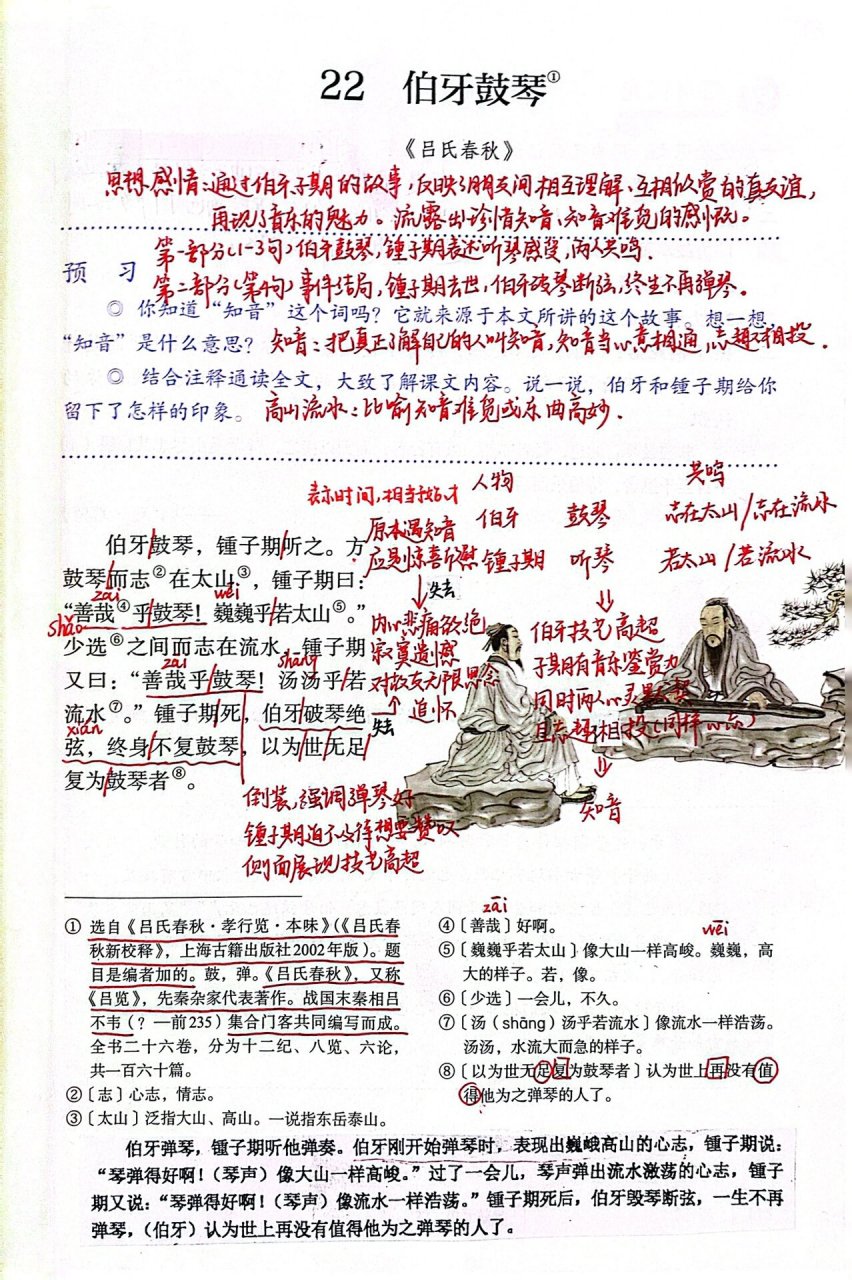 22 伯牙鼓琴①
《吕氏春秋》
思想感情:通过伯牙子期的故事,反映了朋友间相互理解、互相欣赏的真友谊,
再现了音乐的魅力。流露出珍惜知音、知音难觅的感慨。
第一部分(1-3句)伯牙鼓琴,锺子期表述听琴感受,两人共鸣.
预 习
第二部分(第4句)事件结局,锺子期去世,伯牙破琴断弦,终生不再弹琴。
◎ 你知道“知音”这个词吗?它就来源于本文所讲的这个故事。想一想,
“知音”是什么意思? 知音:把真正了解自己的人叫知音,知音当心意相通,志趣相投.
◎ 结合注释通读全文,大致了解课文内容。说一说,伯牙和锺子期给你
留下了怎样的印象。 高山流水:比喻知音难觅或乐曲高妙.
表示时间,相当于刚才
人物
共鸣
伯牙 鼓琴 志在太山/志在流水
锺子期 听琴 若太山/若流水
原本遇知音
应是惊喜欣慰
↓失去
内心悲痛欲绝
寂寞遗憾
对故友无限思念
↑追怀
失去
伯牙技艺高超
子期有音乐鉴赏力
同时两人心灵默契
且志趣相投(同样心志)
知音
伯牙/鼓琴,锺子期/听之。方
鼓琴/而志②在太山③,锺子期曰:
zāi
wēi
“善哉④乎/鼓琴!巍巍乎/若太山⑤。”
shǎo
少选⑥之间/而志在流水,锺子期
zāi
shāng
又曰:“善哉乎/鼓琴!汤汤乎/若
流水⑦。”锺子期/死,伯牙/破琴绝
xián
弦,终身/不复鼓琴,以为/世/无足
复为/鼓琴者⑧。
倒装,强调弹琴好
锺子期迫不及待想要赞叹
侧面展现技艺高超
① 选自《吕氏春秋·孝行览·本味》(《吕氏春
秋新校释》,上海古籍出版社2002年版)。题
目是编者加的。鼓,弹。《吕氏春秋》,又称
《吕览》,先秦杂家代表著作。战国末秦相吕
不韦(?—前235)集合门客共同编写而成。
全书二十六卷,分为十二纪、八览、六论,
共一百六十篇。
②〔志〕心志,情志。
③〔太山〕泛指大山、高山。一说指东岳泰山。
zāi
④〔善哉〕好啊。
wēi
⑤〔巍巍乎若太山〕像大山一样高峻。巍巍,高
大的样子。若,像。
⑥〔少选〕一会儿,不久。
⑦〔汤(shāng)汤乎若流水〕像流水一样浩荡。
汤汤,水流大而急的样子。
⑧〔以为世无足复为鼓琴者〕认为世上再没有值
得他为之弹琴的人了。
伯牙弹琴,锺子期听他弹奏。伯牙刚开始弹琴时,表现出巍峨高山的心志,锺子期说:
“琴弹得好啊!(琴声)像大山一样高峻。”过了一会儿,琴声弹出流水激荡的心志,锺子
期又说:“琴弹得好啊!(琴声)像流水一样浩荡。”锺子期死后,伯牙毁琴断弦,一生不再
弹琴,(伯牙)认为世上再没有值得他为之弹琴的人了。